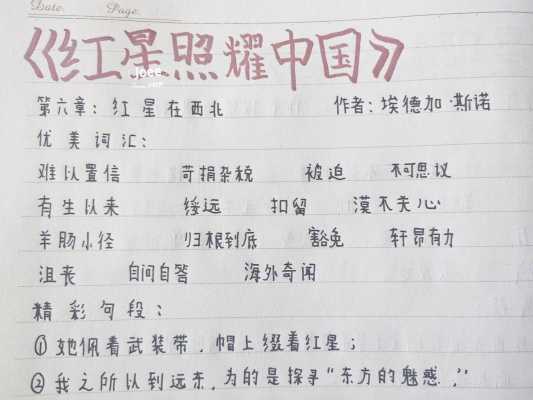 Date. Page.
《红星照耀中国》
Joee
第六章：红星在西北 作者：埃德加·斯诺
优美词汇：
难以置信 苛捐杂税 被迫 不可思议
有生以来 绥远 扣留 漠不关心
羊肠小径 归根到底 豁免 轩昂有力
沮丧 自问自答 海外奇闻
精彩句段：
①她佩着武装带，帽上缀着红星；
②我之所以到远东，为的是探寻“东方的魅惑，”